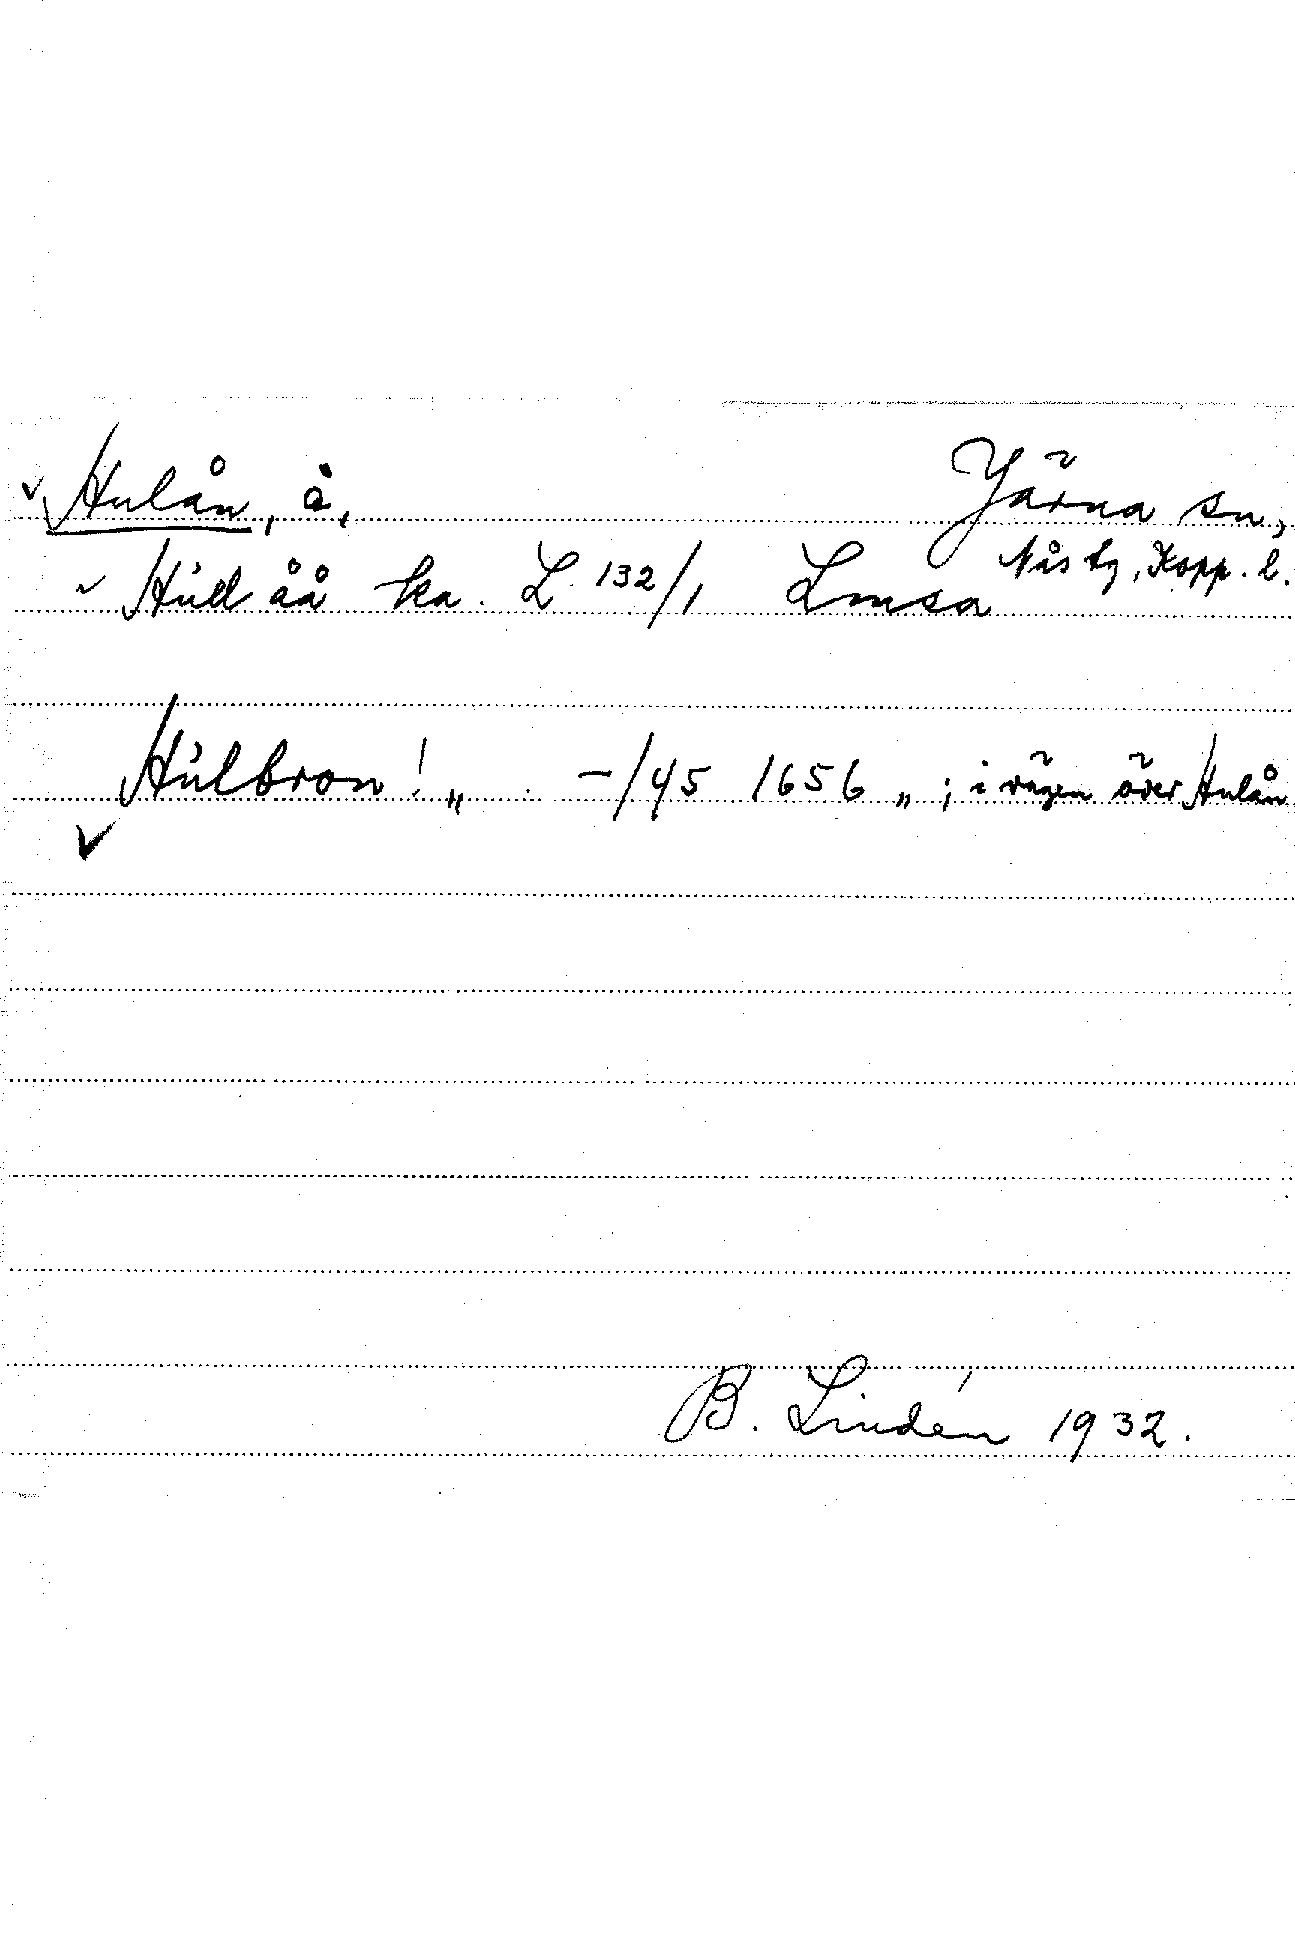 Hulån, å, Järna sn,
Nås tg, Kopp. l.
Hull åå ka. L 132/1 Lmsa
Hulbron! „ -/45 1656 „ ; i vägen över Hulån
B. Lindén 1932.